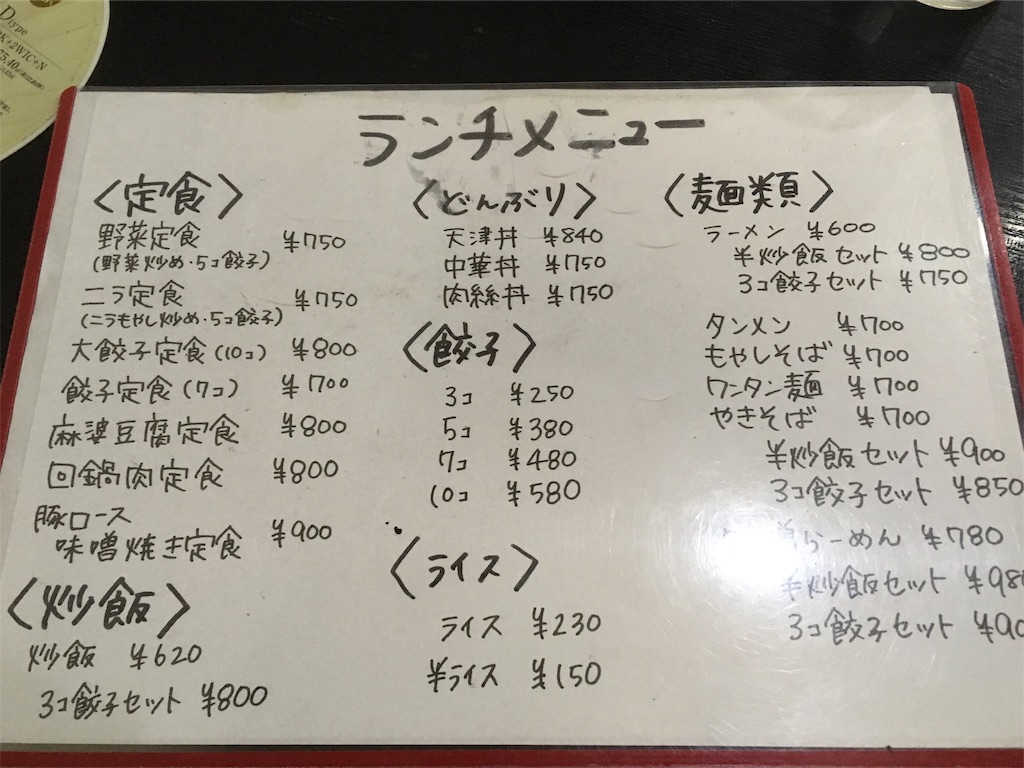 D type
K+2WIC+N
75.40
ランチメニュー
〈定食〉
野菜定食 ¥750
(野菜炒め・5コ餃子)
ニラ定食 ¥750
(ニラもやし炒め・5コ餃子)
大餃子定食(10コ) ¥800
餃子定食(7コ) ¥700
麻婆豆腐定食 ¥800
回鍋肉定食 ¥800
豚ロース
味噌焼き定食 ¥900
〈炒飯〉
炒飯 ¥620
3コ餃子セット ¥800
〈どんぶり〉
天津丼 ¥840
中華丼 ¥750
肉絲丼 ¥750
〈餃子〉
3コ ¥250
5コ ¥380
7コ ¥480
10コ ¥580
〈ライス〉
ライス ¥230
半ライス ¥150
〈麺類〉
ラーメン ¥600
半炒飯セット ¥800
3コ餃子セット ¥750
タンメン ¥700
もやしそば ¥700
ワンタン麺 ¥700
やきそば ¥700
半炒飯セット ¥900
3コ餃子セット ¥850
らーめん ¥780
半炒飯セット ¥98
3コ餃子セット ¥90